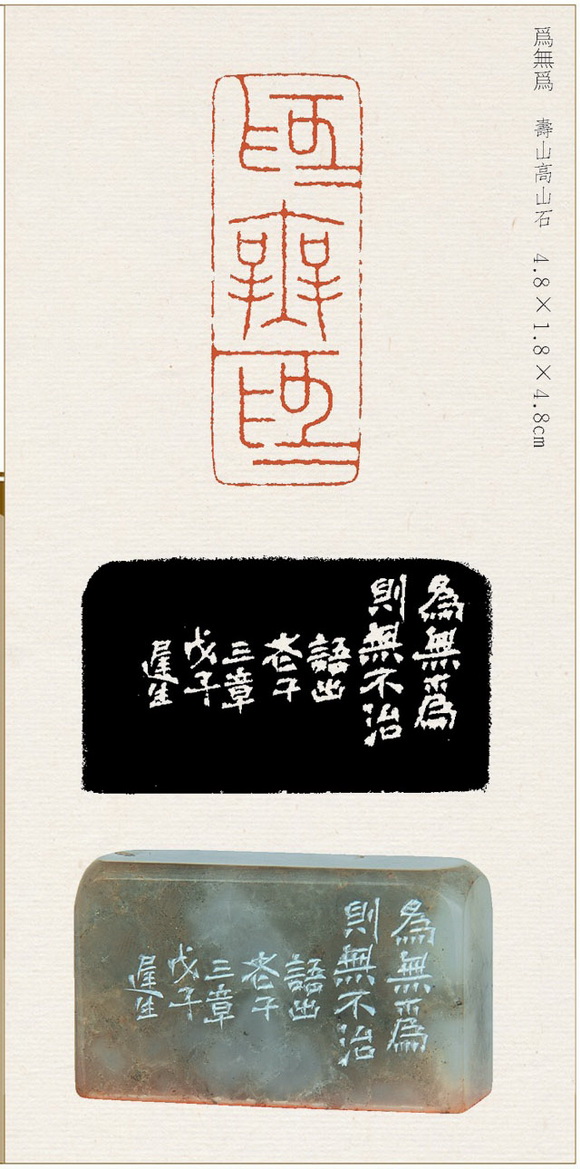 爲無爲　壽山高山石　4.8×1.8×4.8cm
爲無爲
為無爲
則無不治
語出
老子
三章
戊子
生
為無爲
則無不治
語出
老子
三章
戊子
生